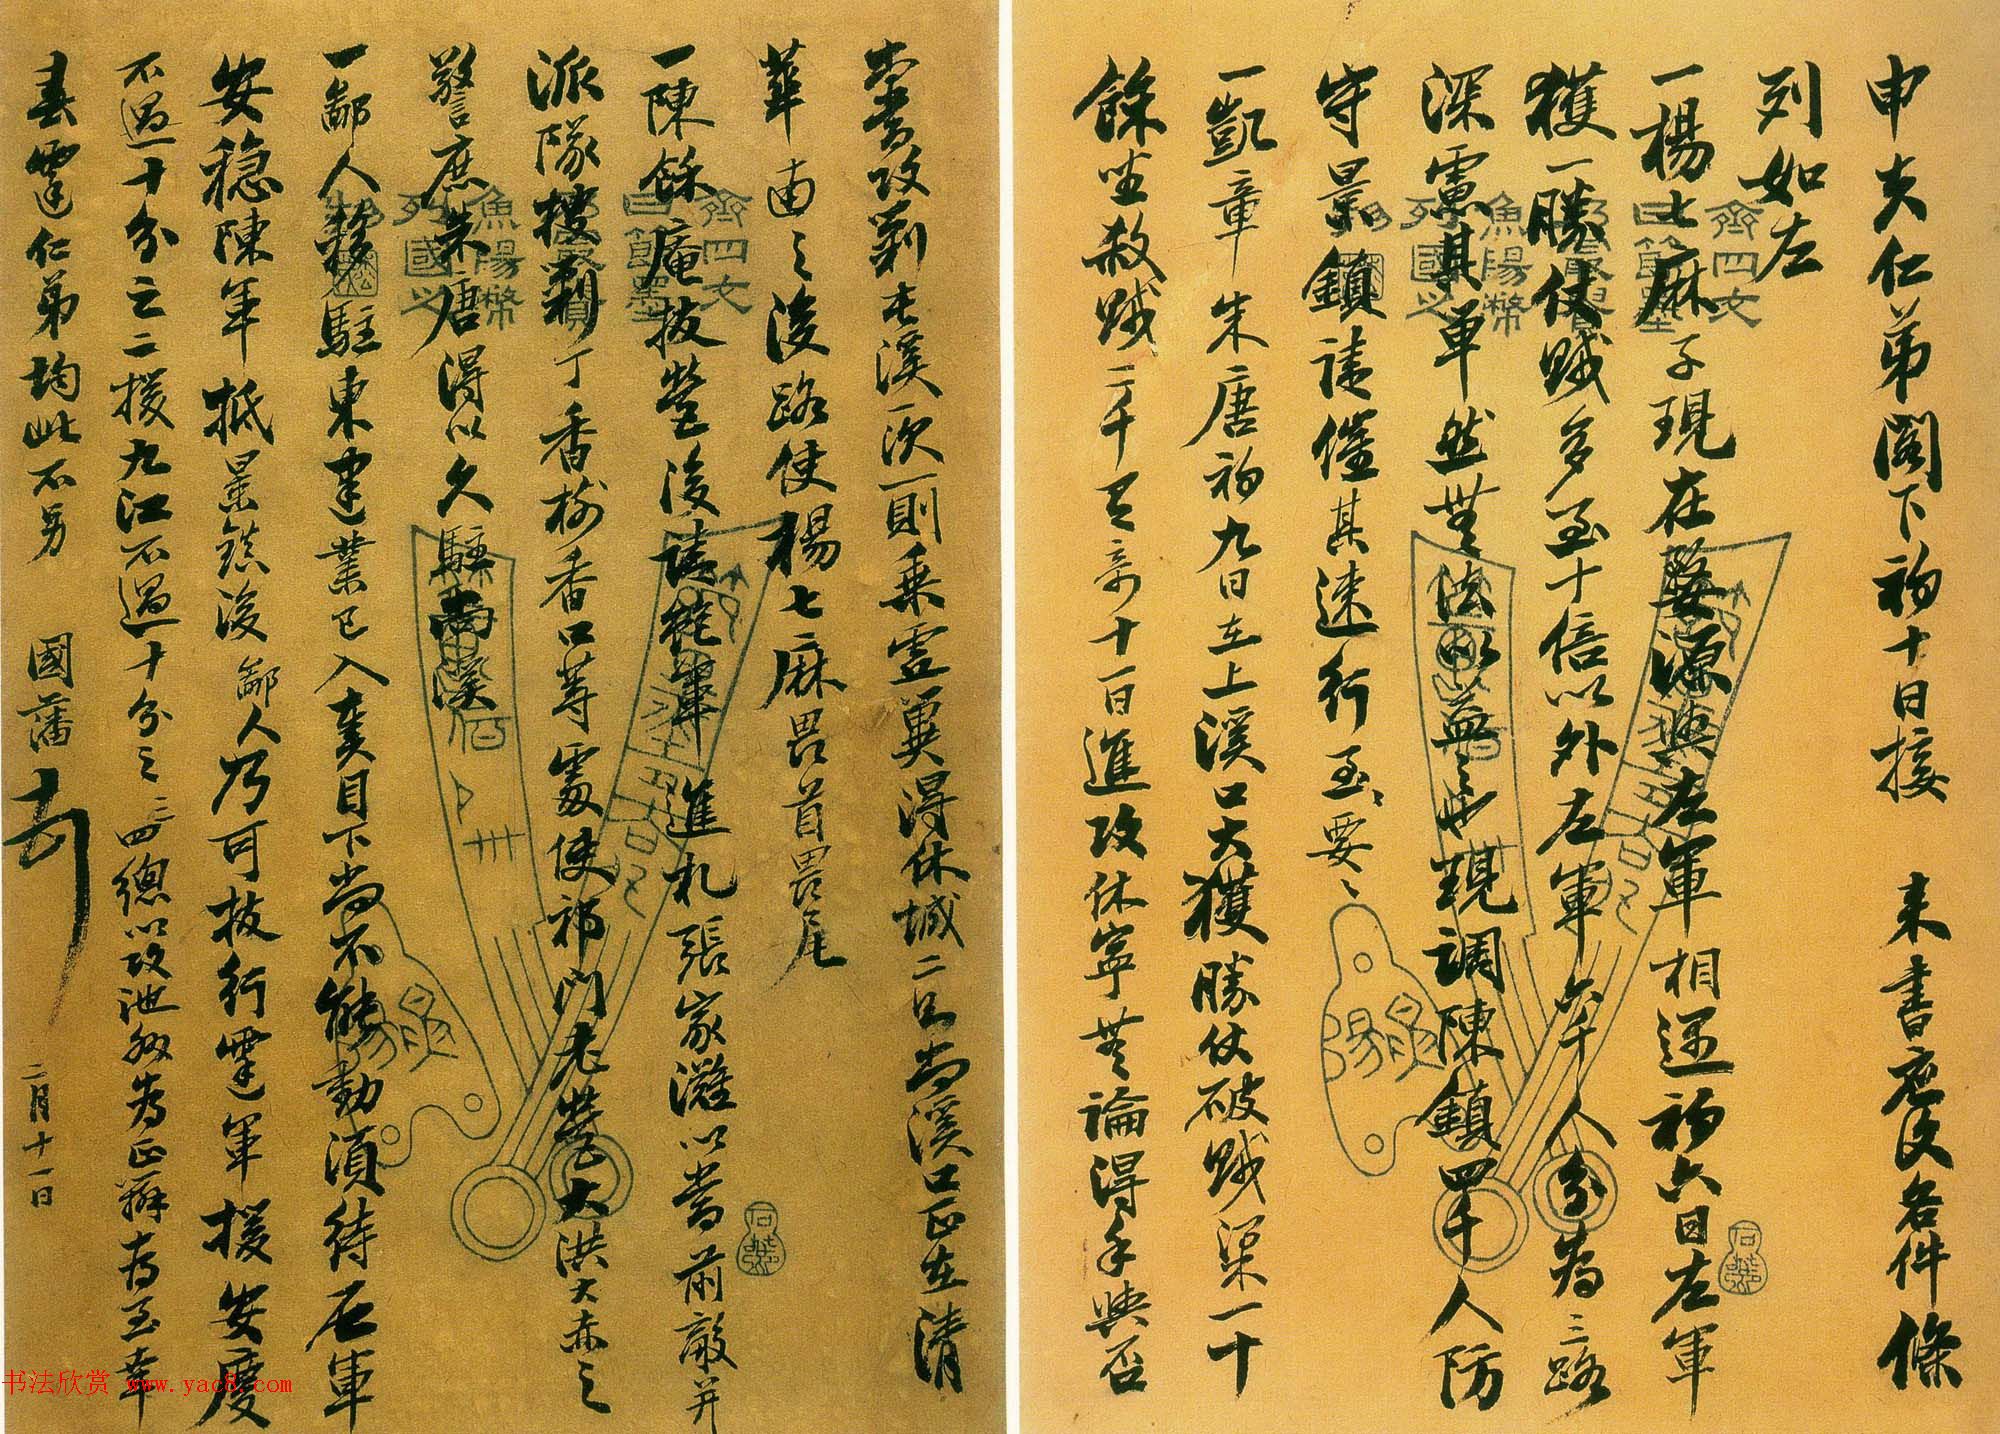 申夫仁弟閣下初十日接 來書应復各件條
列如左
一楊七麻子現在婺源與左軍相遇初六日左軍
獲一勝仗賊多至十倍以外左軍六千人分為三路
深慮其單然無法以益之也現調陳鎮四千人防
守景鎮請催其速行至要々
一凱章朱唐初九日在上溪口大獲勝仗破賊壘一十
餘坐殺賊二千有奇十一日進攻休寧無論得手與否
當攻剿屯溪一次一則乘虛冀得休城二則尚溪口正在清
華之後路使楊七麻畏首畏尾
一陳餘庵拔營後請貴軍進札張家灘以當前敵并
派隊搜剿丁香樹香口等處使祁門老營大洪大赤之
警庶朱唐得以久駐南溪
一鄙人移駐東建業已入奏目下尚不能動須待左軍
安穩陳軍抵景鎮後鄙人乃可拔行霆軍援安慶
不過十分之二援九江不過十分之三四總以攻池州為正辦專至幸
春霆仁弟均此不另 國藩 頓首
二月十一日
齊四文
曰節墨
魚陽幣
列國之
书法欣赏 www.yac8.com